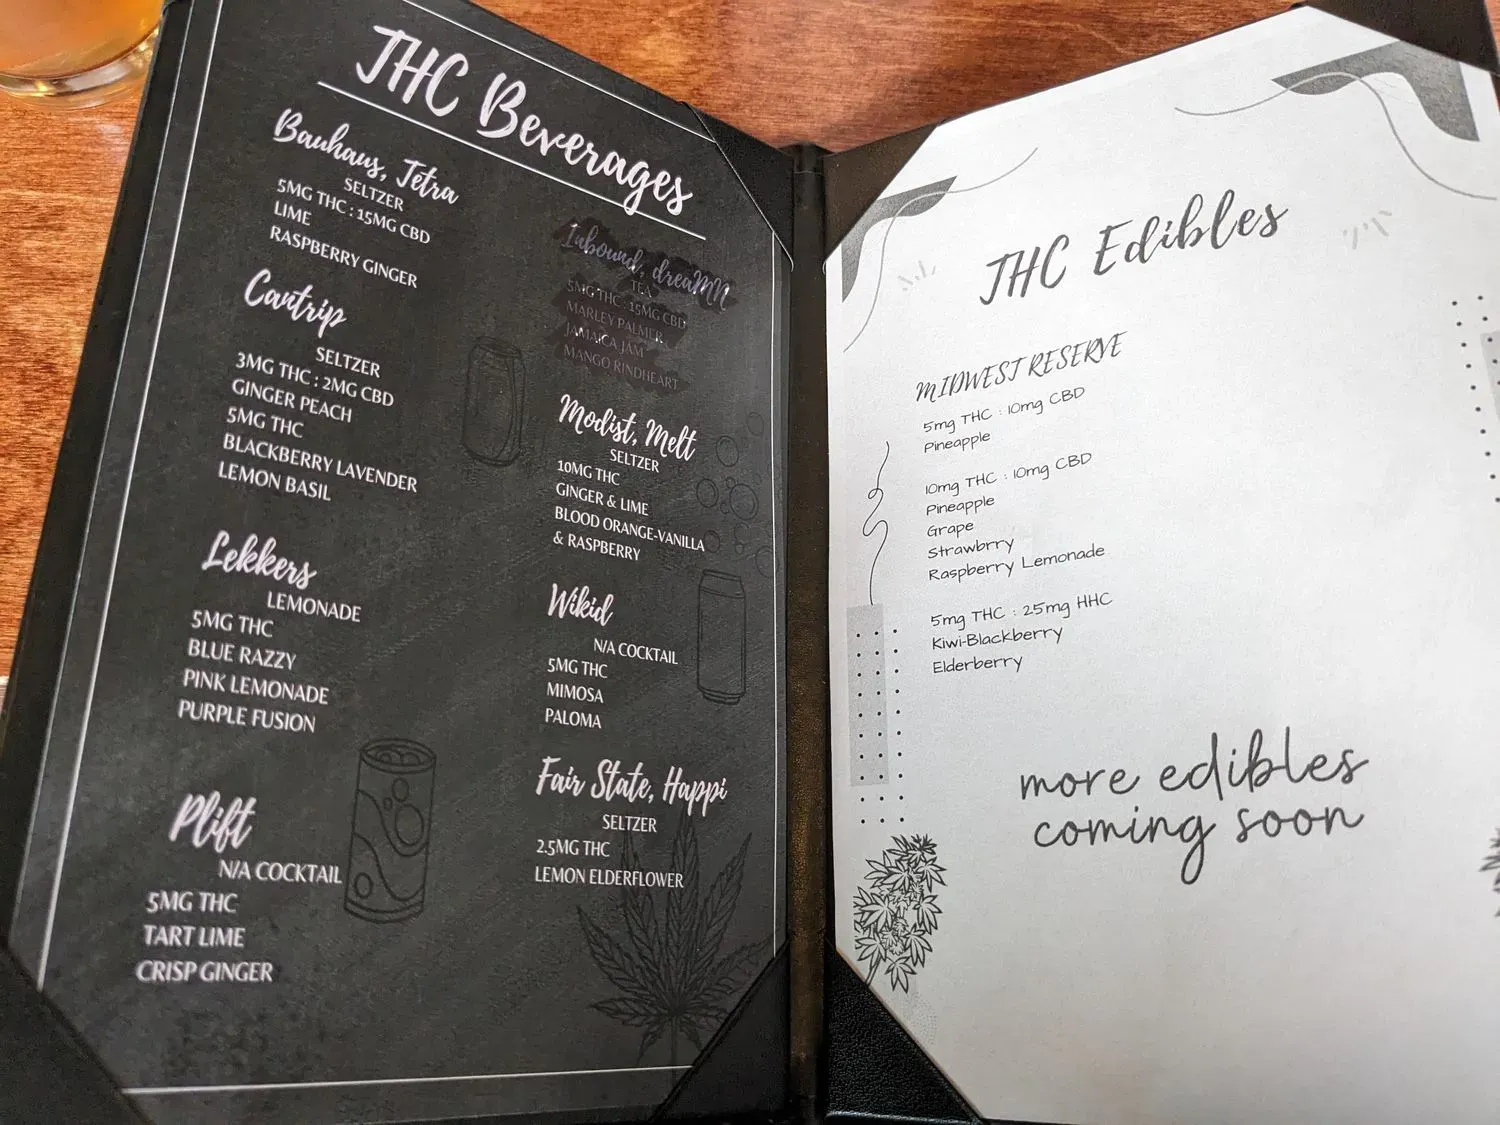 THC Beverages
Bauhaus, Tetra
SELTZER
5MG THC : 15MG CBD
LIME
RASPBERRY GINGER
Cantrip
SELTZER
3MG THC : 2MG CBD
GINGER PEACH
5MG THC
BLACKBERRY LAVENDER
LEMON BASIL
Lekkers
LEMONADE
5MG THC
BLUE RAZZY
PINK LEMONADE
PURPLE FUSION
Plift
N/A COCKTAIL
5MG THC
TART LIME
CRISP GINGER
Inbound, dreaMN
TEA
5MG THC : 15MG CBD
MARLEY PALMER
JAMAICA JAM
MANGO RINDHEART
Modist, Melt
SELTZER
10MG THC
GINGER & LIME
BLOOD ORANGE-VANILLA
& RASPBERRY
Wikid
N/A COCKTAIL
5MG THC
MIMOSA
PALOMA
Fair State, Happi
SELTZER
2.5MG THC
LEMON ELDERFLOWER
THC Edibles
MIDWEST RESERVE
5mg THC : 10mg CBD
Pineapple
10mg THC : 10mg CBD
Pineapple
Grape
Strawbrry
Raspberry Lemonade
5mg THC : 25mg HHC
Kiwi-Blackberry
Elderberry
more edibles
coming soon